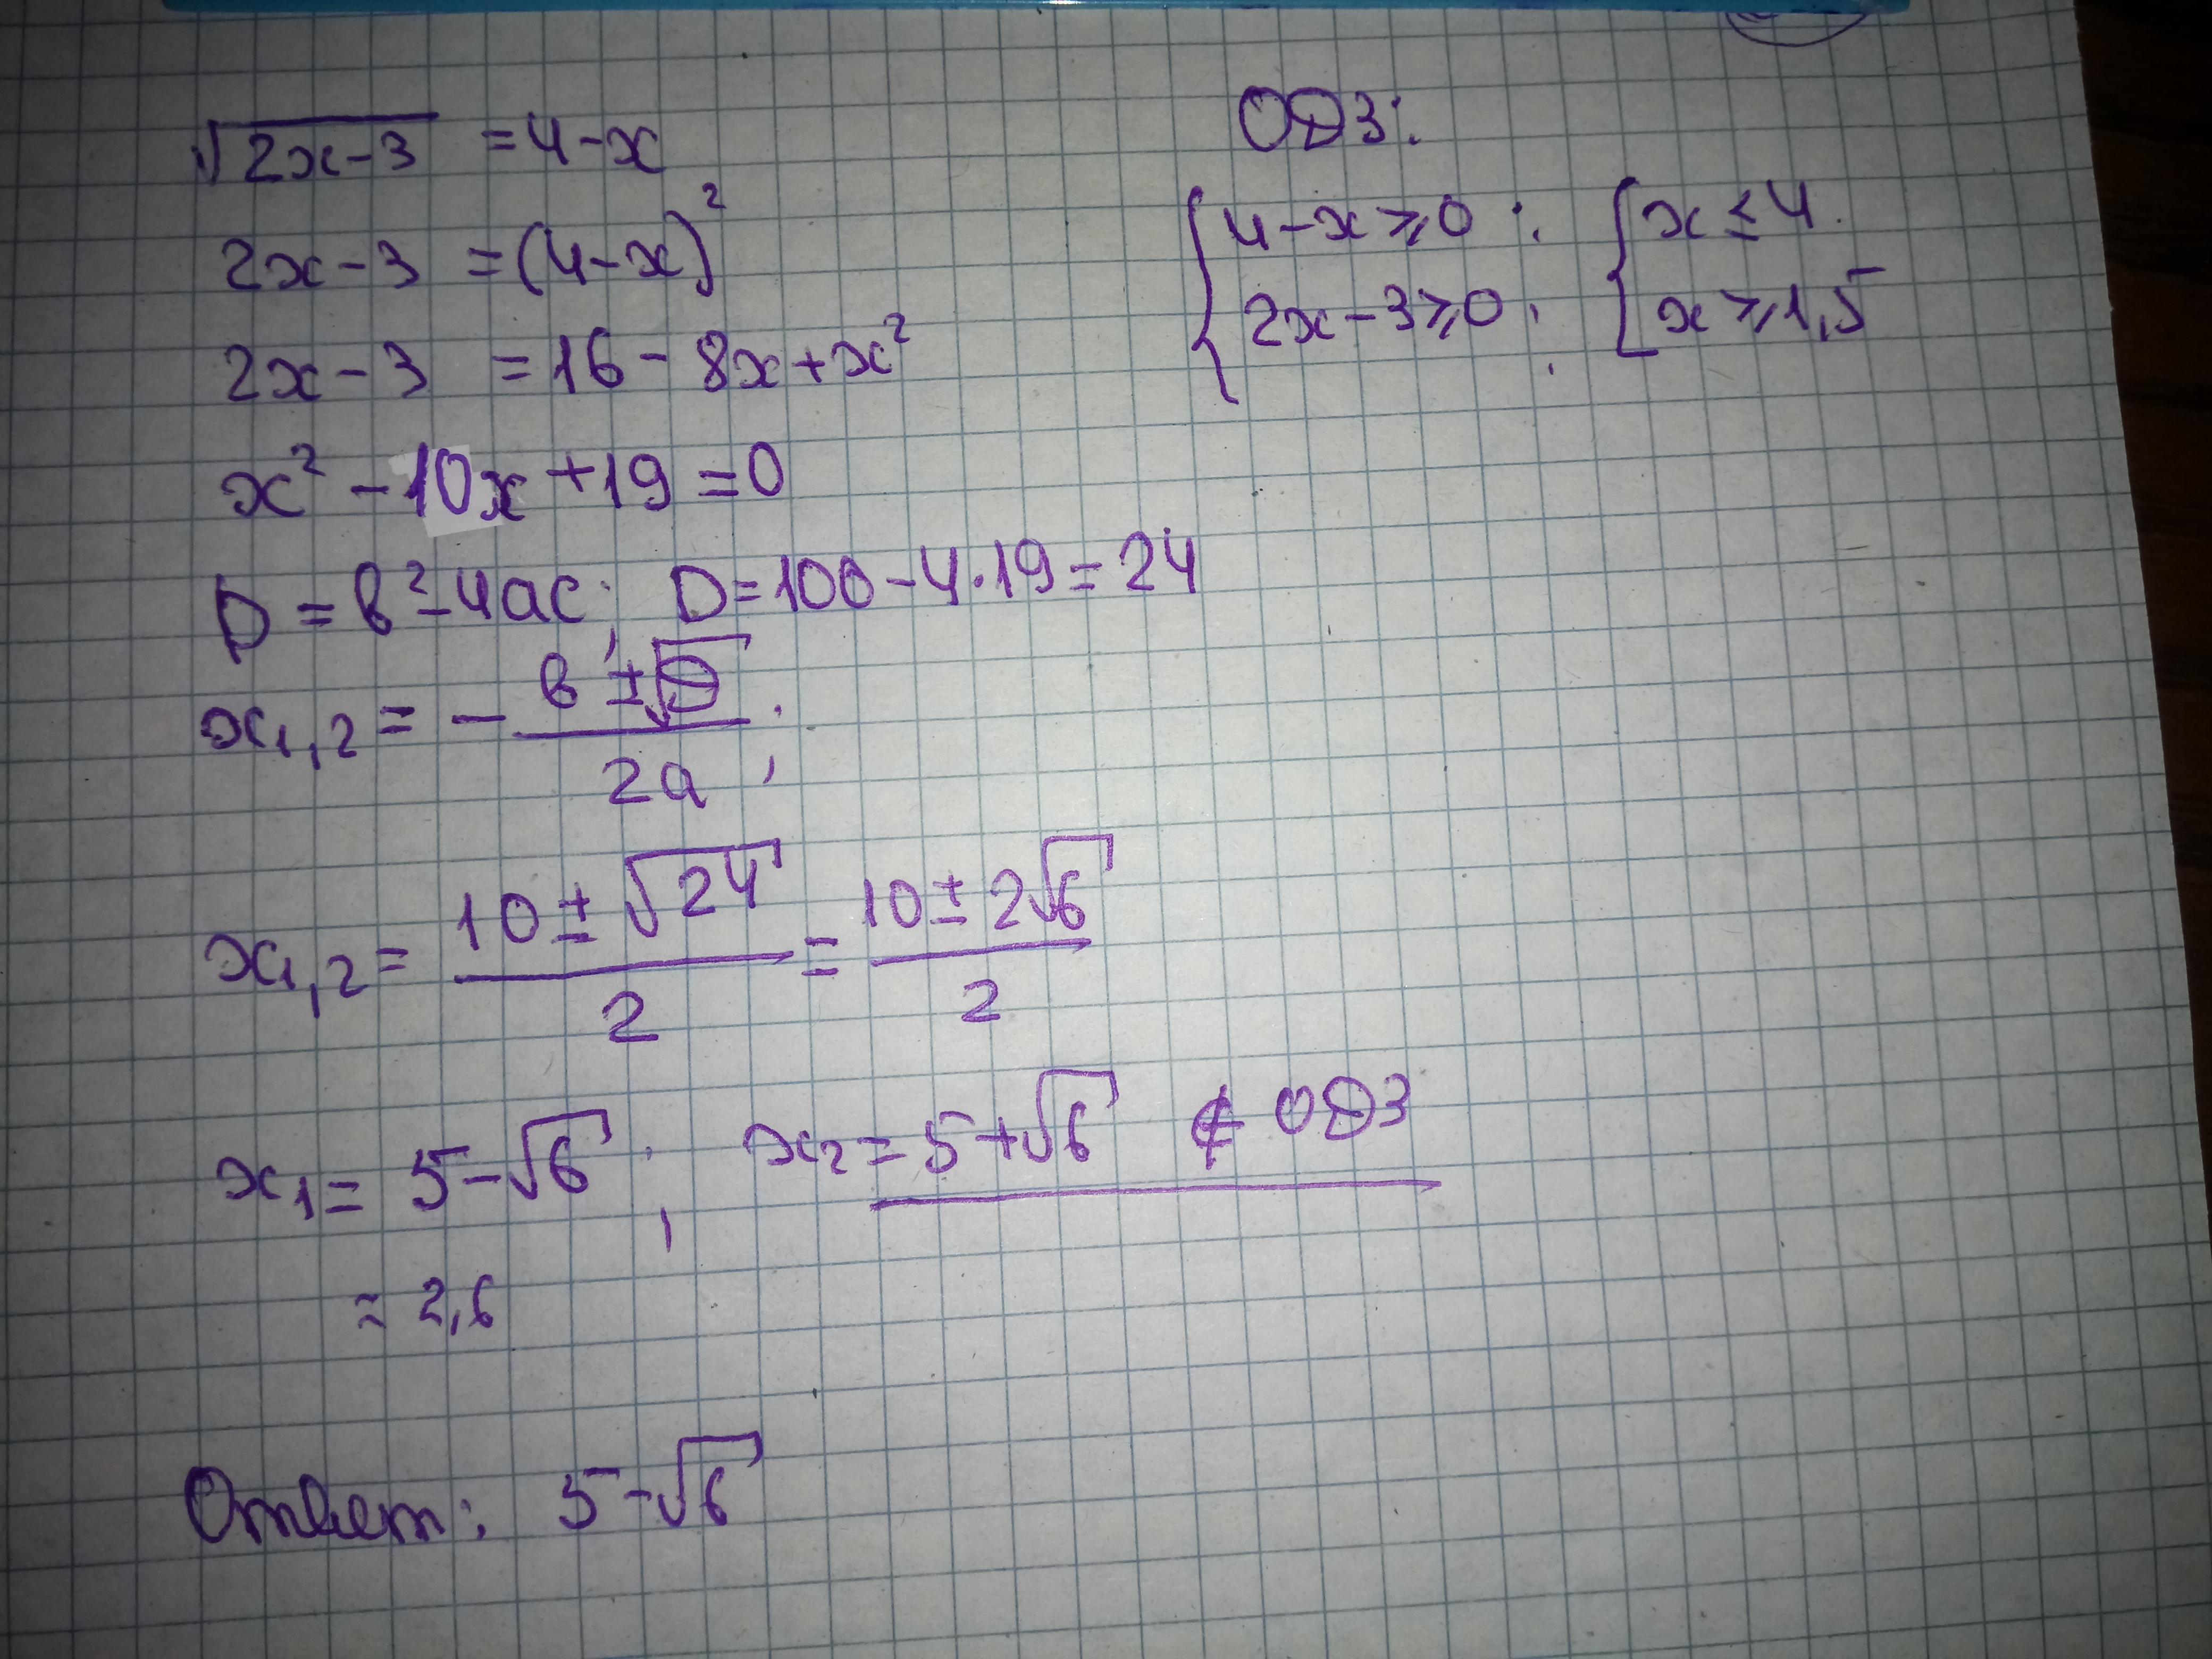 √(2x-3) = 4-x
2x-3 = (4-x)²
2x-3 = 16-8x+x²
x²-10x+19=0
D = b²-4ac; D=100-4·19=24
x₁,₂ = - b±√D / 2a;
x₁,₂ = 10±√24 / 2 = 10±2√6 / 2
x₁= 5-√6; x₂=5+√6 ∉ ОДЗ
≈ 2,6
Ответ: 5-√6
ОДЗ:
{4-x⩾0; {x≤4.
{2x-3⩾0; {x⩾1,5